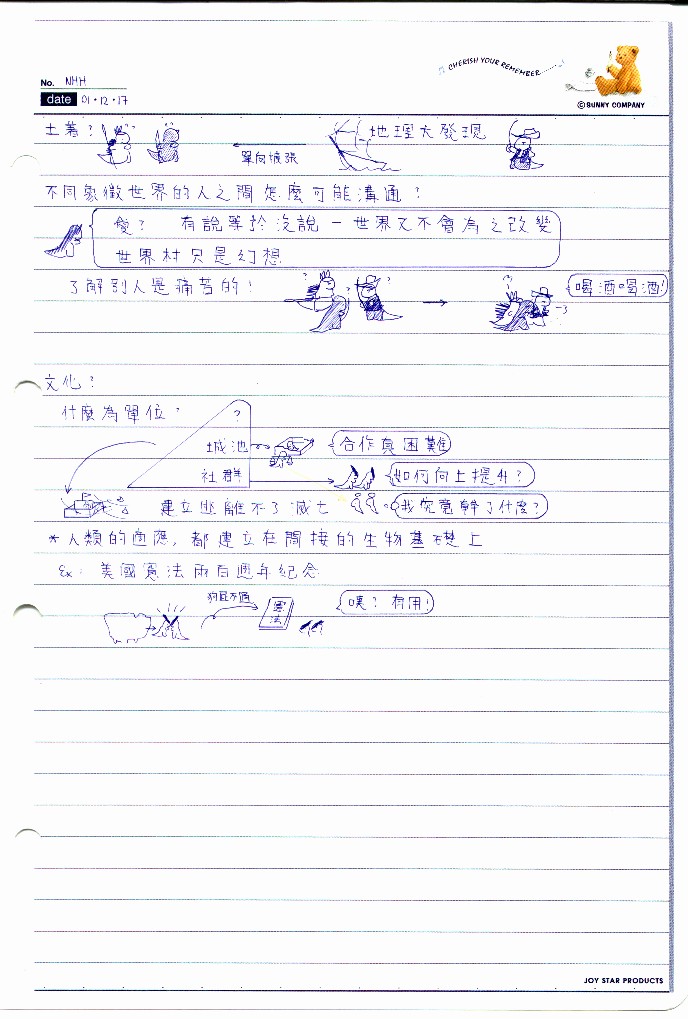 CHERISH YOUR REMEMBER
No. NHH
date 01・12・17
©BUNNY COMPANY
土著? 單向擴張 地理大發現
不同象徵世界的人之間怎麼可能溝通?
愛? 有說等於沒說－世界又不會為之改變
世界村只是幻想
了解別人是痛苦的! 喝酒喝酒!
文化?
什麼為單位? ?
城池 合作真困難
社群 如何向上提升?
建立 逃離不了滅亡 我究竟幹了什麼?
*人類的適應,都建立在間接的生物基礎上
Ex: 美國憲法兩百週年紀念
狗屁不通 憲法 噢? 有用!
JOY STAR PRODUCTS